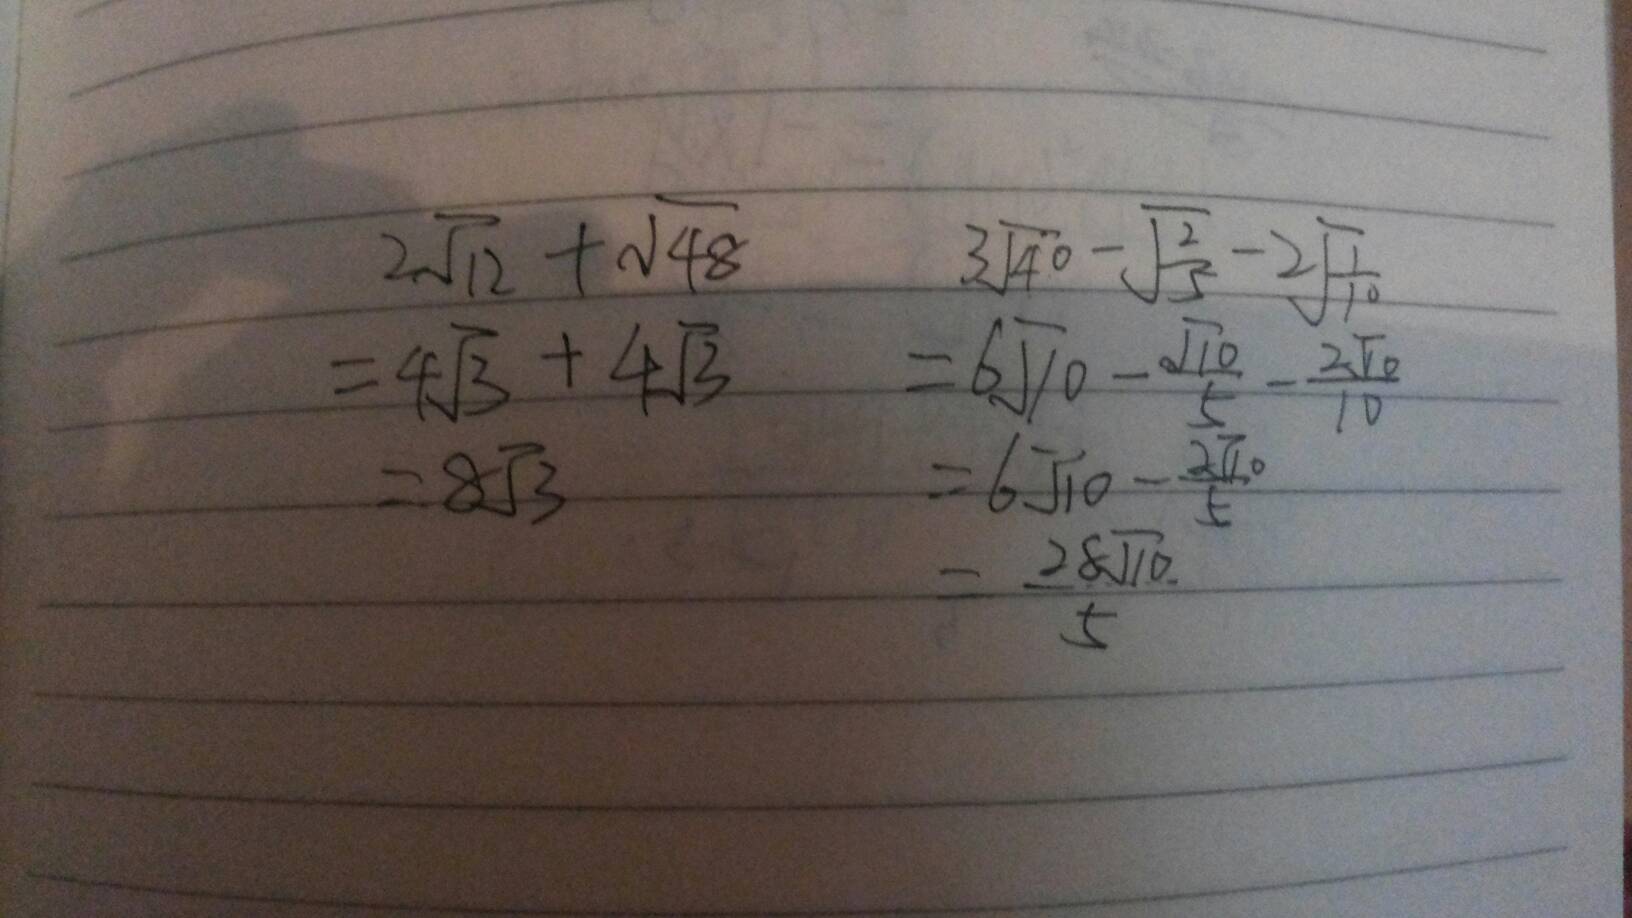 2√12 + √48
= 4√3 + 4√3
= 8√3
3√40 - √(2/5) - 2√(1/10)
= 6√10 - √10/5 - 2√10/10
= 6√10 - 2√10/5
= 28√10/5